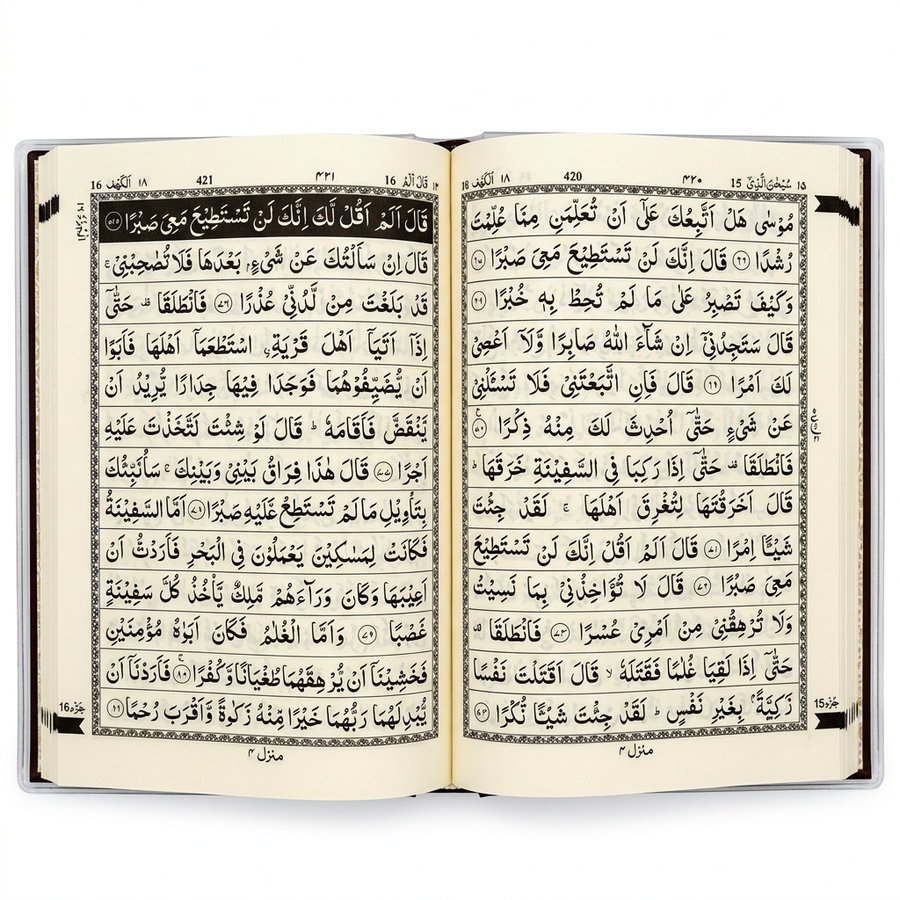 سُبْحٰنَ الَّذِیْۤ ١٥
15
٤٢٠
420
اَلْكَهْف ١٨
18
مُوْسٰى هَلْ اَتَّبِعُكَ عَلٰۤى اَنْ تُعَلِّمَنِ مِمَّا عُلِّمْتَ
رُشْدًا ۝٦٦ قَالَ اِنَّكَ لَنْ تَسْتَطِیْعَ مَعِیَ صَبْرًا ۝٦٧
وَكَیْفَ تَصْبِرُ عَلٰى مَا لَمْ تُحِطْ بِهٖ خُبْرًا ۝٦٨
قَالَ سَتَجِدُنِیْۤ اِنْ شَآءَ اللّٰهُ صَابِرًا وَّلَاۤ اَعْصِیْ
لَكَ اَمْرًا ۝٦٩ قَالَ فَاِنِ اتَّبَعْتَنِیْ فَلَا تَسْـَٔلْنِیْ
عَنْ شَیْءٍ حَتّٰۤى اُحْدِثَ لَكَ مِنْهُ ذِكْرًا ۝٧٠
فَانْطَلَقَا ۥ حَتّٰۤى اِذَا رَكِبَا فِی السَّفِیْنَةِ خَرَقَهَا ؕ
قَالَ اَخَرَقْتَهَا لِتُغْرِقَ اَهْلَهَا ۚ لَقَدْ جِئْتَ
شَیْـًٔا اِمْرًا ۝٧١ قَالَ اَلَمْ اَقُلْ اِنَّكَ لَنْ تَسْتَطِیْعَ
مَعِیَ صَبْرًا ۝٧٢ قَالَ لَا تُؤَاخِذْنِیْ بِمَا نَسِیْتُ
وَلَا تُرْهِقْنِیْ مِنْ اَمْرِیْ عُسْرًا ۝٧٣ فَانْطَلَقَا
حَتّٰۤى اِذَا لَقِیَا غُلٰمًا فَقَتَلَهٗ ۙ قَالَ اَقَتَلْتَ نَفْسًا
زَكِیَّةًۢ بِغَیْرِ نَفْسٍ ؕ لَقَدْ جِئْتَ شَیْـًٔا نُّكْرًا ۝٧٤
جُزْء 15
منزل ٤
قَالَ اَلَمْ ١٦
16
٤٢١
421
اَلْكَهْف ١٨
16
قَالَ اَلَمْ اَقُلْ لَّكَ اِنَّكَ لَنْ تَسْتَطِیْعَ مَعِیَ صَبْرًا ۝٧٥
قَالَ اِنْ سَاَلْتُكَ عَنْ شَیْءٍۭ بَعْدَهَا فَلَا تُصٰحِبْنِیْ ۚ
قَدْ بَلَغْتَ مِنْ لَّدُنِّیْ عُذْرًا ۝٧٦ فَانْطَلَقَا حَتّٰۤى
اِذَاۤ اَتَیَاۤ اَهْلَ قَرْیَةِ اسْتَطْعَمَاۤ اَهْلَهَا فَاَبَوْا
اَنْ یُّضَیِّفُوْهُمَا فَوَجَدَا فِیْهَا جِدَارًا یُّرِیْدُ اَنْ
یَّنْقَضَّ فَاَقَامَهٗ ؕ قَالَ لَوْ شِئْتَ لَتَّخَذْتَ عَلَیْهِ
اَجْرًا ۝٧٧ قَالَ هٰذَا فِرَاقُ بَیْنِیْ وَبَیْنِكَ ۚ سَاُنَبِّئُكَ
بِتَاْوِیْلِ مَا لَمْ تَسْتَطِعْ عَّلَیْهِ صَبْرًا ۝٧٨ اَمَّا السَّفِیْنَةُ
فَكَانَتْ لِمَسٰكِیْنَ یَعْمَلُوْنَ فِی الْبَحْرِ فَاَرَدْتُّ اَنْ
اَعِیْبَهَا وَكَانَ وَرَآءَهُمْ مَّلِكٌ یَّاْخُذُ كُلَّ سَفِیْنَةٍ
غَصْبًا ۝٧٩ وَاَمَّا الْغُلٰمُ فَكَانَ اَبَوٰهُ مُؤْمِنَیْنِ
فَخَشِیْنَاۤ اَنْ یُّرْهِقَهُمَا طُغْیَانًا وَّكُفْرًا ۝٨٠ فَاَرَدْنَاۤ اَنْ
یُّبْدِلَهُمَا رَبُّهُمَا خَیْرًا مِّنْهُ زَكٰوةً وَّاَقْرَبَ رُحْمًا ۝٨١
جُزْء 16
منزل ٤